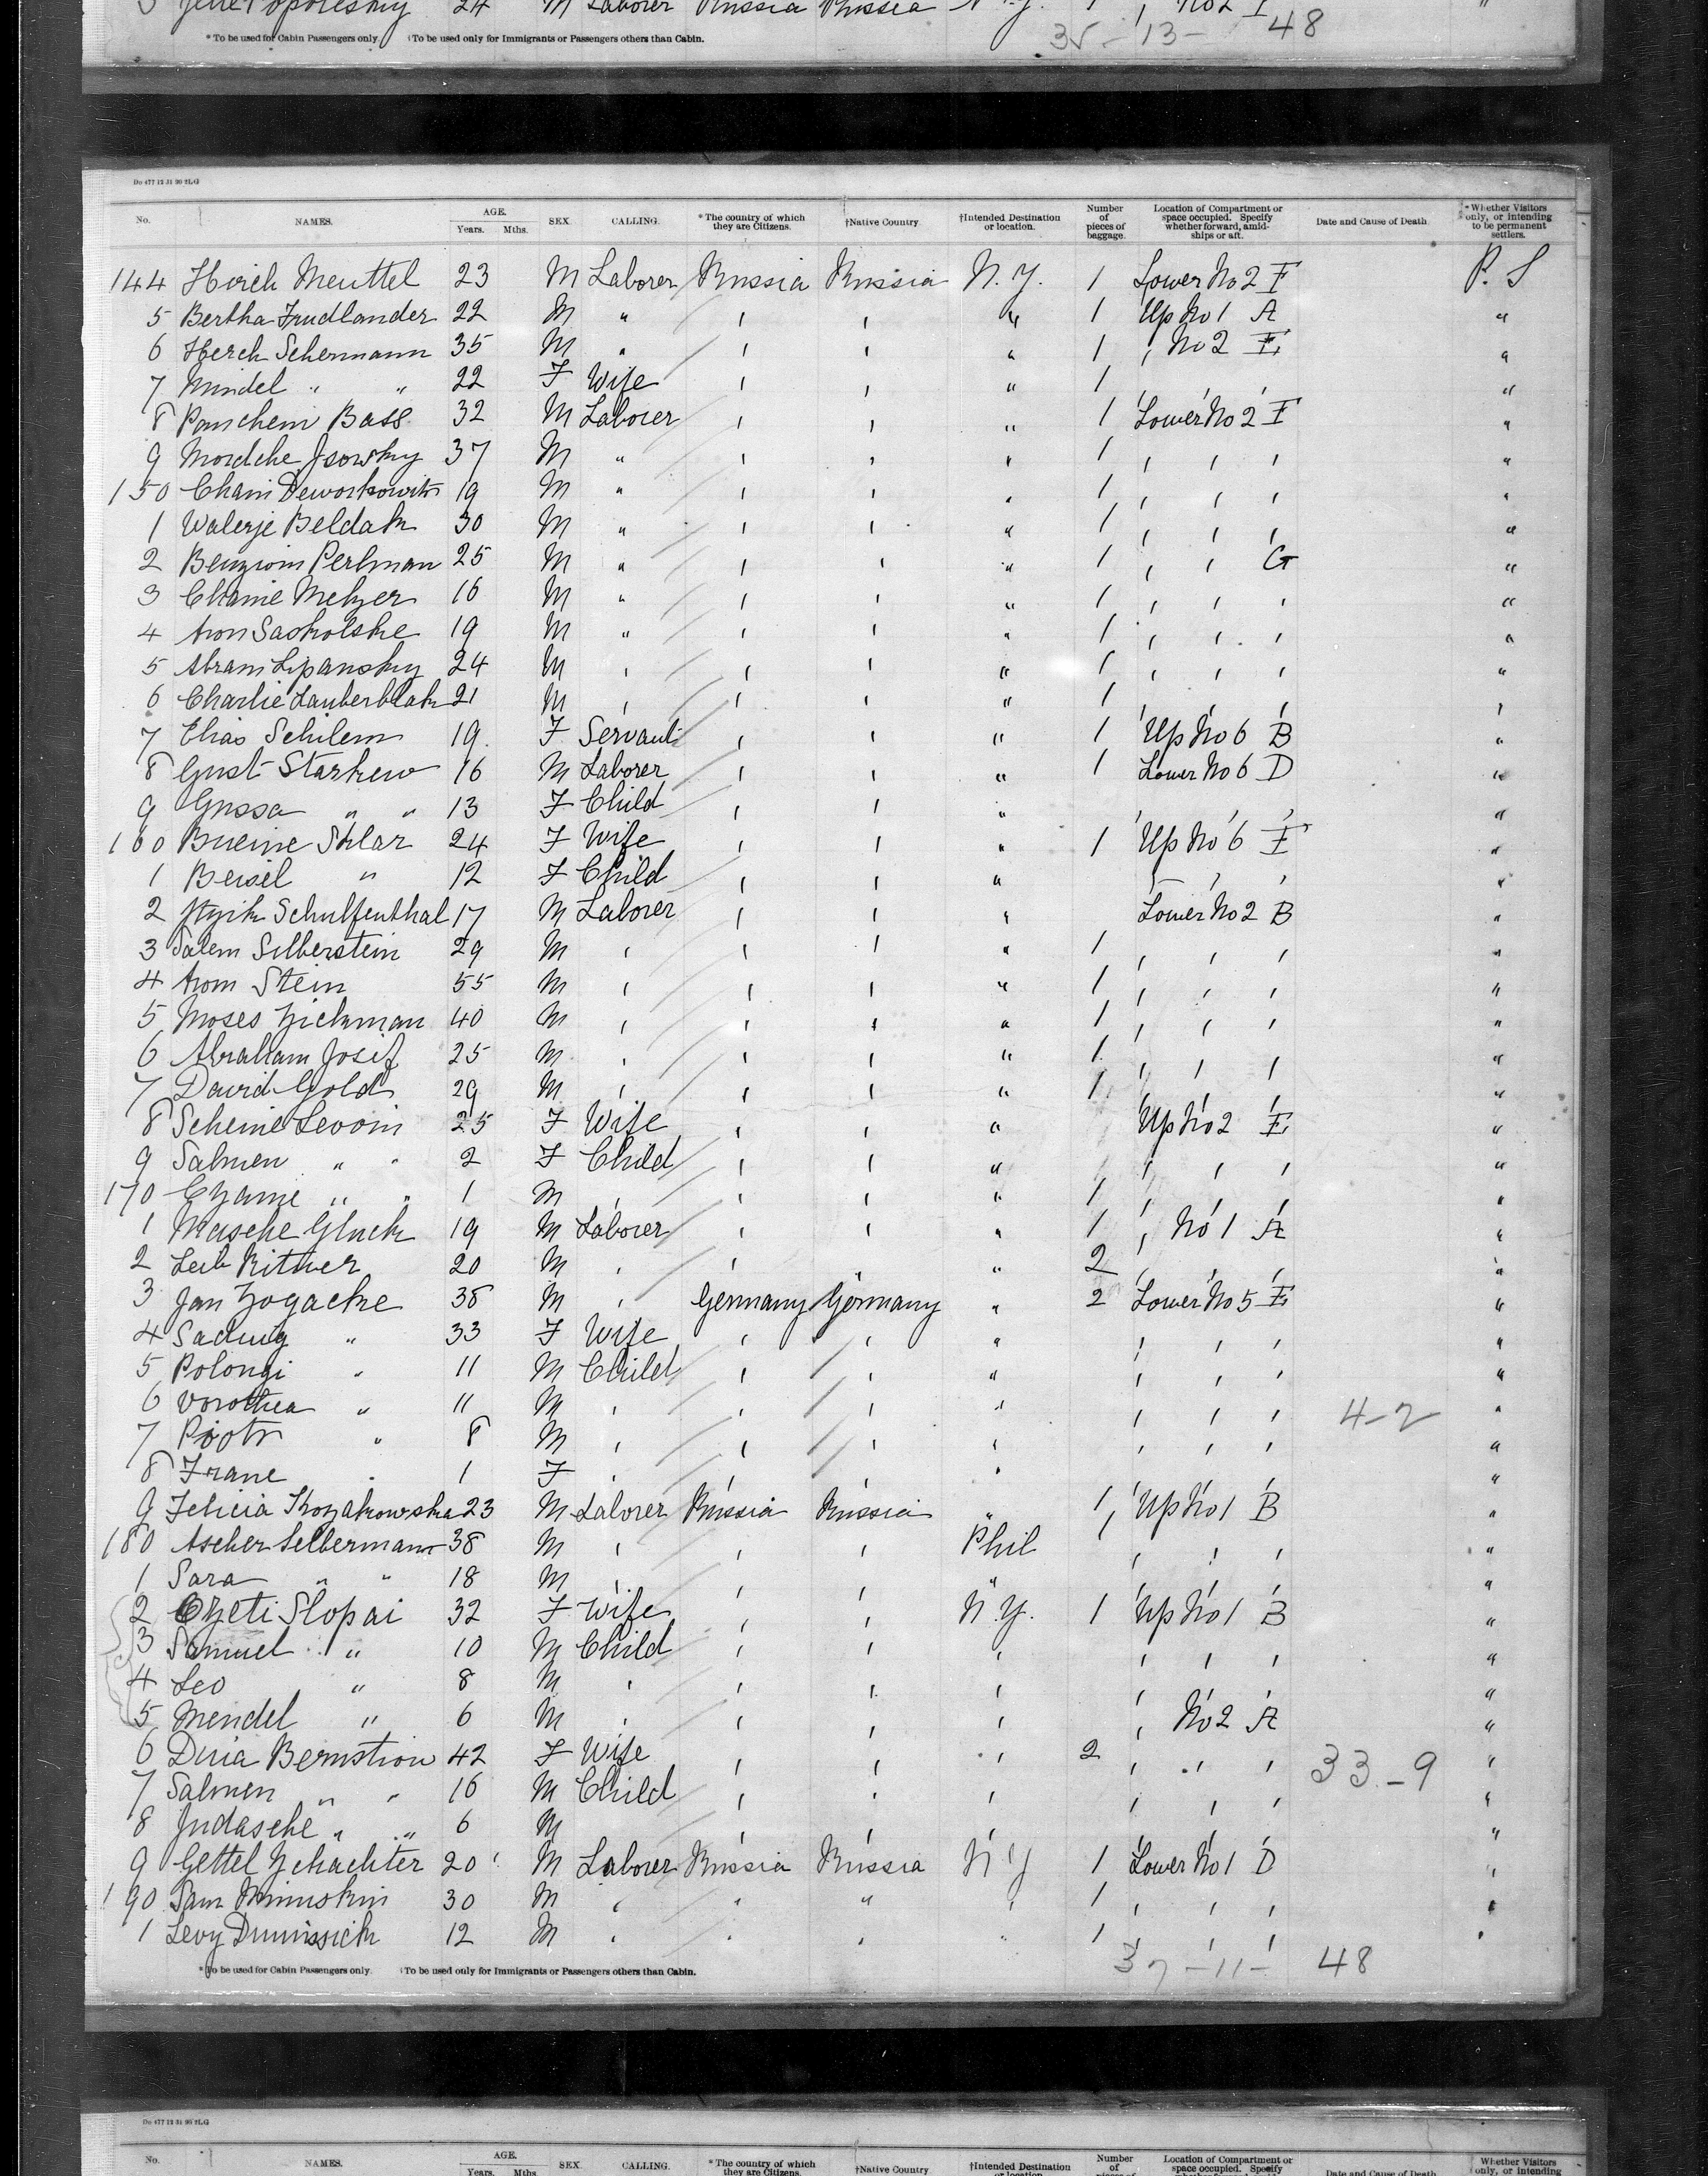 5 24 M Laborer Russia Russia N.Y. 1 , No 2 I "
* To be used for Cabin Passengers only. †To be used only for Immigrants or Passengers others than Cabin.
35 - 13 - 48
Do 477 12 31 90 2LG
No. NAMES. AGE. Years. Mths. SEX. CALLING. *The country of which they are Citizens. †Native Country †Intended Destination or location. Number of pieces of baggage. Location of Compartment or space occupied. Specify whether forward, amid-ships or aft. Date and Cause of Death. *Whether Visitors only, or intending to be permanent settlers.
144 Hirch Meuttel 23 M Laborer Russia Russia N.Y. 1 Lower No 2 F P. S
5 Bertha Frudlander 22 M " , , " 1 Up No 1 A "
6 Herch Schermann 35 M " , , " 1 , No 2 E "
7 Mindel " " 22 F Wife , , " 1 , , , "
8 Panchem Bass 32 M Laborer , , " 1 Lower No 2 F "
9 Mordche Isowsky 37 M " , , , 1 , , , "
150 Chaim Deworkowitz 19 M " , , , 1 , , , "
1 Walerje Beldak 30 M " , , " 1 , , , "
2 Benziom Perlman 25 M " , , " 1 , , G "
3 Chanie Melzer 16 M " , , " 1 , , , "
4 Aron Saskolske 19 M " , , " 1 , , , "
5 Abram Lipansky 24 M , , , " 1 , , , "
6 Charlie Lauberblatt 21 M , , , " 1 , , , ,
7 Elias Schilem 19 F Servant , , " 1 Up No 6 B "
8 Gust Starkew 16 M Laborer , , " 1 Lower No 6 D "
9 Gussa " " 13 F Child , , " , , "
160 Bueine Sklar 24 F Wife , , " 1 Up No 6 F "
1 Beisel " 12 F Child , , " , , , "
2 Schulfenthal 17 M Laborer , , , Lower No 2 B "
3 Salem Silberstein 29 M , , , " 1 , , , "
4 Arom Stein 55 M , , , " 1 , , , "
5 Moses Zickman 40 M , , , " 1 , , , "
6 Abraham Josif 25 M , , , " 1 , , , "
7 David Gold 29 M , , , " 1 , , , "
8 Scheine Levoin 25 F Wife , , " Up No 2 E "
9 Salmen " " 2 F Child , , " , , , "
170 Czame " " 1 M , , , " 1 , , , "
1 Masche Gluck 19 M Laborer , , " 1 , No 1 A "
2 Leib Ritwer 20 M , , " " 2 , , , "
3 Jan Zogacke 38 M , Germany Germany " 2 Lower No 5 E "
4 Sadwig " 33 F Wife , , " , , , "
5 Polongi " 11 M Child , , " , , , "
6 Dorothea " 11 M , , , " , , , 4-2 "
7 Piotr " 8 M , , , , , , , "
8 Frane " 1 F , , , , "
9 Felicia Kozakowska 23 M Laborer Russia Russia " 1 Up No 1 B "
180 Ascher Selbermann 38 M , , , Phil 1 , , , "
1 Sara " " 18 M , , , " "
2 Czeti Slopai 32 F Wife , , N.Y. 1 Up No 1 B "
3 Samuel " 10 M Child , , , , , , "
4 Leo " 8 M , , , , , , , "
5 Mendel " 6 M , , , , , No 2 A "
6 Dina Bernstion 42 F Wife , , , 2 , , , 33-9 ,
7 Salmen " " 16 M Child , , , , , , "
8 Judasche " " 6 M , , , , , , "
9 Gettel Schachter 20 M Laborer Russia Russia N Y 1 Lower No 1 D ,
190 Sam Minnskin 30 M , , " , 1 , , , "
1 Levy 12 M , , , " 1 , , , "
*To be used for Cabin Passengers only. †To be used only for Immigrants or Passengers others than Cabin.
37 - 11 - 48
Do 477 12 31 90 2LG
No. NAMES. AGE. Years. Mths. SEX. CALLING. *The country of which they are Citizens. †Native Country †Intended Destination or location. Number of Location of Compartment or space occupied. Specify Date and Cause of Death. Whether Visitors only, or intending